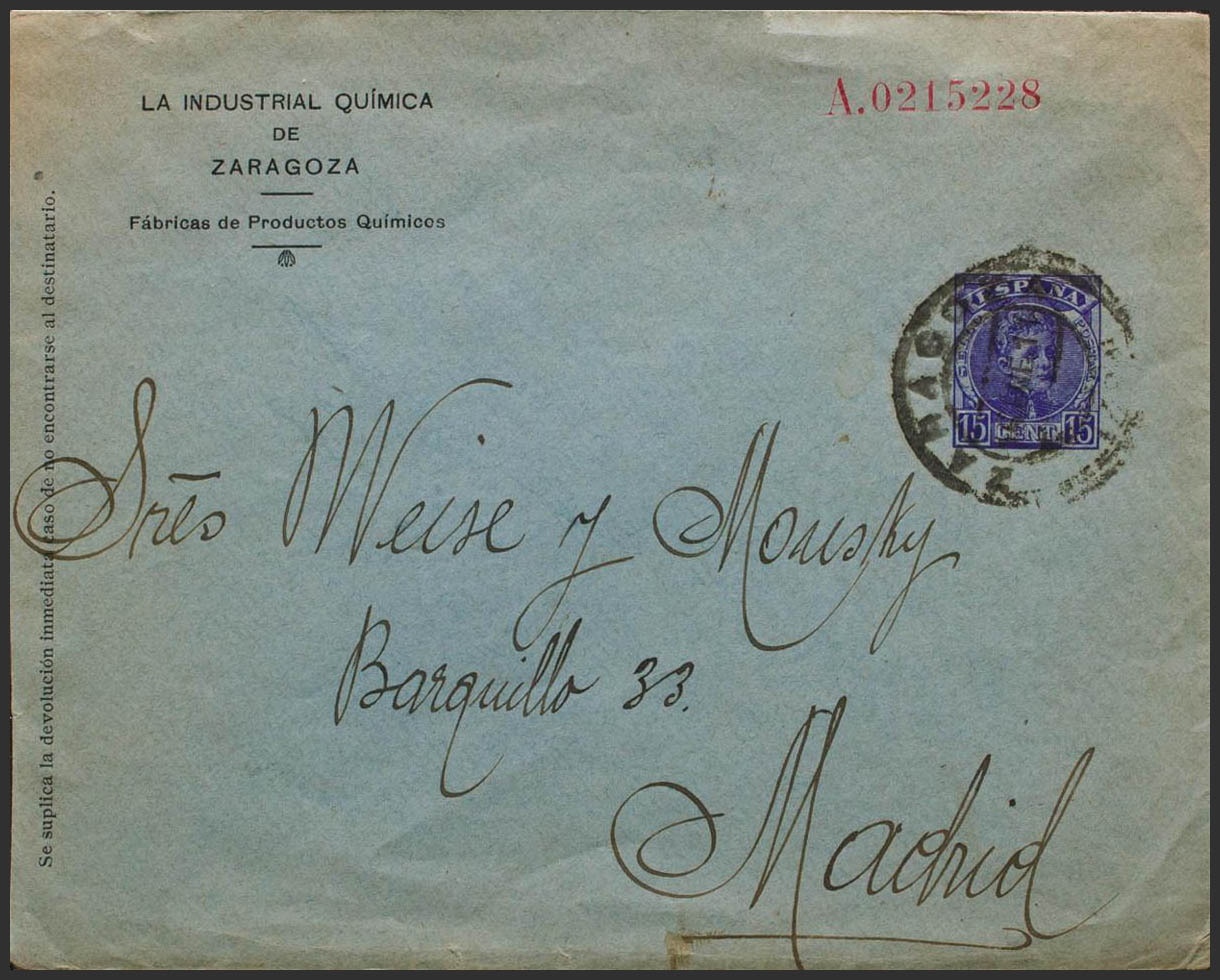 LA INDUSTRIAL QUÍMICA
DE
ZARAGOZA
Fábricas de Productos Químicos
A.0215228
Se suplica la devolución inmediata caso de no encontrarse al destinatario.
ESPAÑA
15 CENT. 15
Srēs Weise y Mousky
Barquillo 33.
Madrid